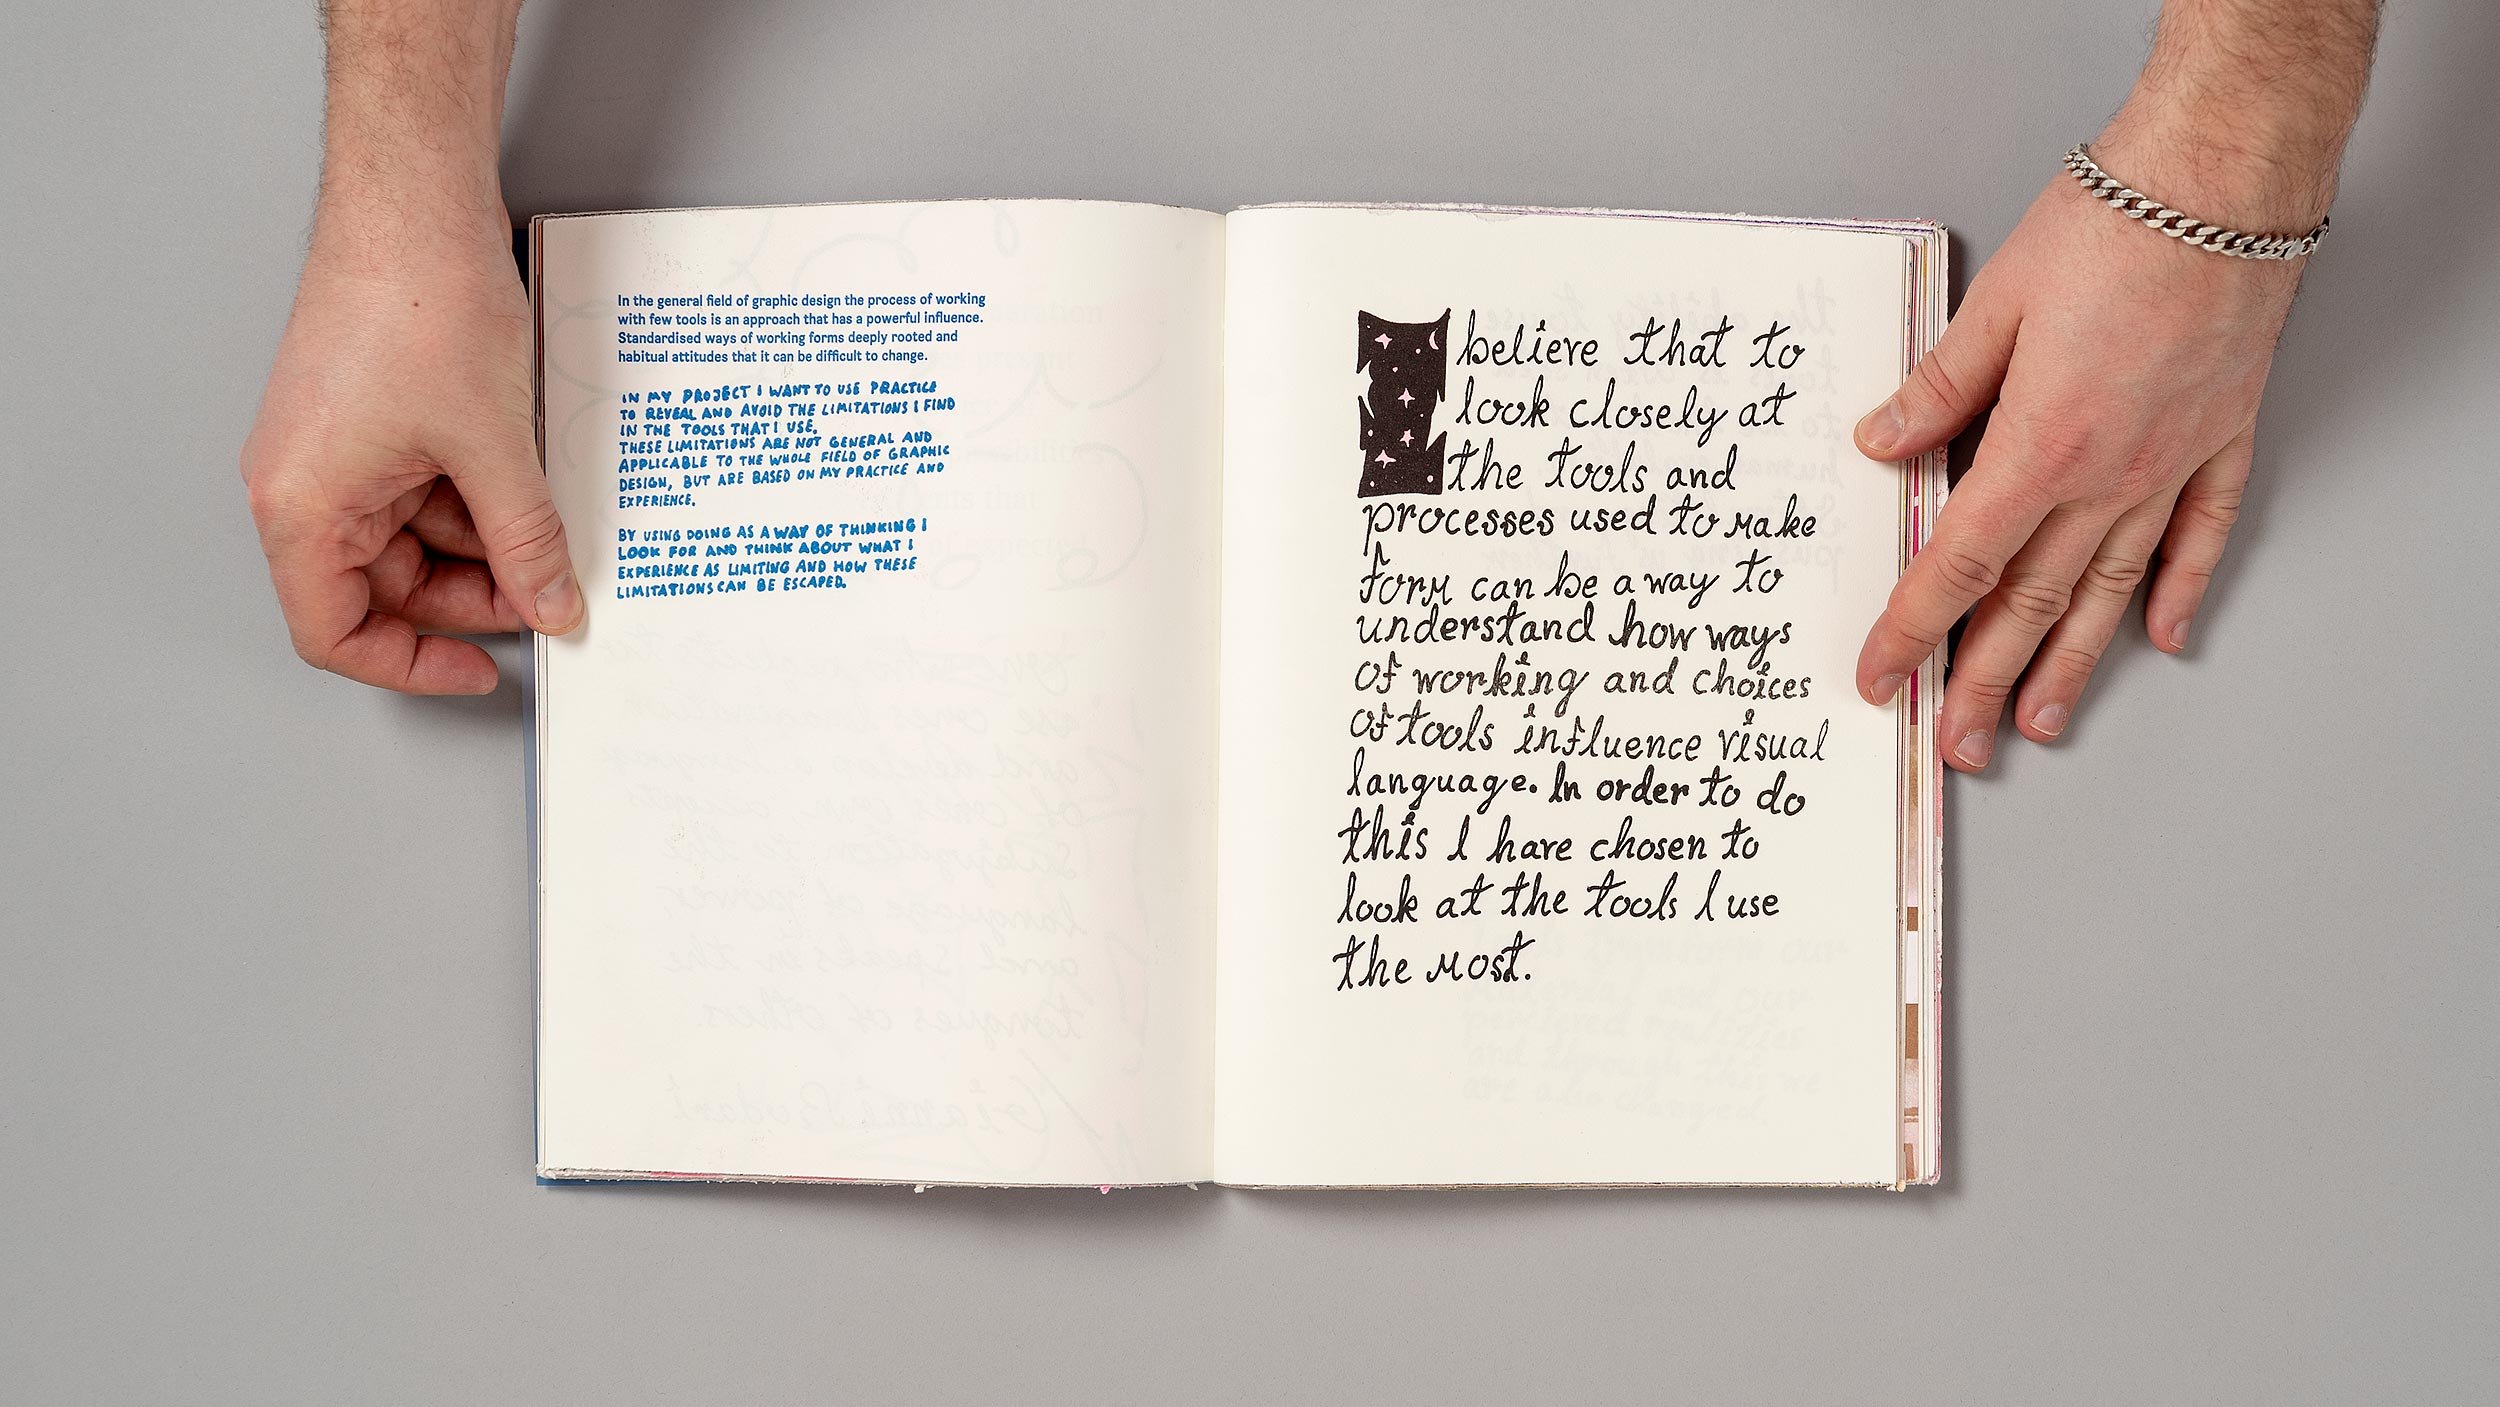 In the general field of graphic design the process of working
with few tools is an approach that has a powerful influence.
Standardised ways of working forms deeply rooted and
habitual attitudes that it can be difficult to change.
IN MY PROJECT I WANT TO USE PRACTICE
TO REVEAL AND AVOID THE LIMITATIONS I FIND
IN THE TOOLS THAT I USE.
THESE LIMITATIONS ARE NOT GENERAL AND
APPLICABLE TO THE WHOLE FIELD OF GRAPHIC
DESIGN, BUT ARE BASED ON MY PRACTICE AND
EXPERIENCE.
BY USING DOING AS A WAY OF THINKING I
LOOK FOR AND THINK ABOUT WHAT I
EXPERIENCE AS LIMITING AND HOW THESE
LIMITATIONS CAN BE ESCAPED.
I believe that to
look closely at
the tools and
processes used to make
form can be a way to
understand how ways
of working and choices
of tools influence visual
language. In order to do
this I have chosen to
look at the tools I use
the most.